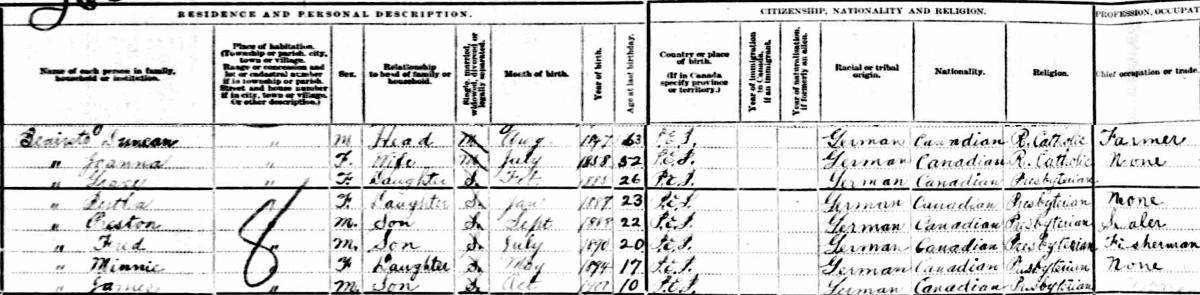 RESIDENCE AND PERSONAL DESCRIPTION. CITIZENSHIP, NATIONALITY AND RELIGION. PROFESSION, OCCUPAT
Name of each person in family, household or institution.
Place of habitation. (Township or parish, city, town or village. Range or concession and lot or cadastral number if in township or parish. Street and house number if in city, town or village. Or other description.)
Sex.
Relationship to head of family or household.
Single, married, widowed, divorced or legally separated.
Month of birth.
Year of birth.
Age at last birthday.
Country or place of birth. (If in Canada specify province or territory.)
Year of immigration to Canada, if an immigrant.
Year of naturalization, if formerly an alien.
Racial or tribal origin.
Nationality.
Religion.
Chief occupation or trade.
Beairsto Duncan " M. Head M. Aug 1847 63 P.E.I. German Canadian R. Catholic Farmer
" Joanna " F. Wife M. July 1858 52 P.E.I. German Canadian R. Catholic None
" " F. Daughter S. Feb 26 P.E.I. German Canadian Presbyterian
" Bertha " F. Daughter S. Jan 1887 23 P.E.I. German Canadian Presbyterian None
" Preston " M. Son S. Sept 1888 22 P.E.I. German Canadian Presbyterian
" Fred " M. Son S. July 1890 20 P.E.I. German Canadian Presbyterian Fisherman
" Minnie " F. Daughter S. May 1894 17 P.E.I. German Canadian Presbyterian None
" James " M. Son S. Oct 10 P.E.I. German Canadian Presbyterian
8